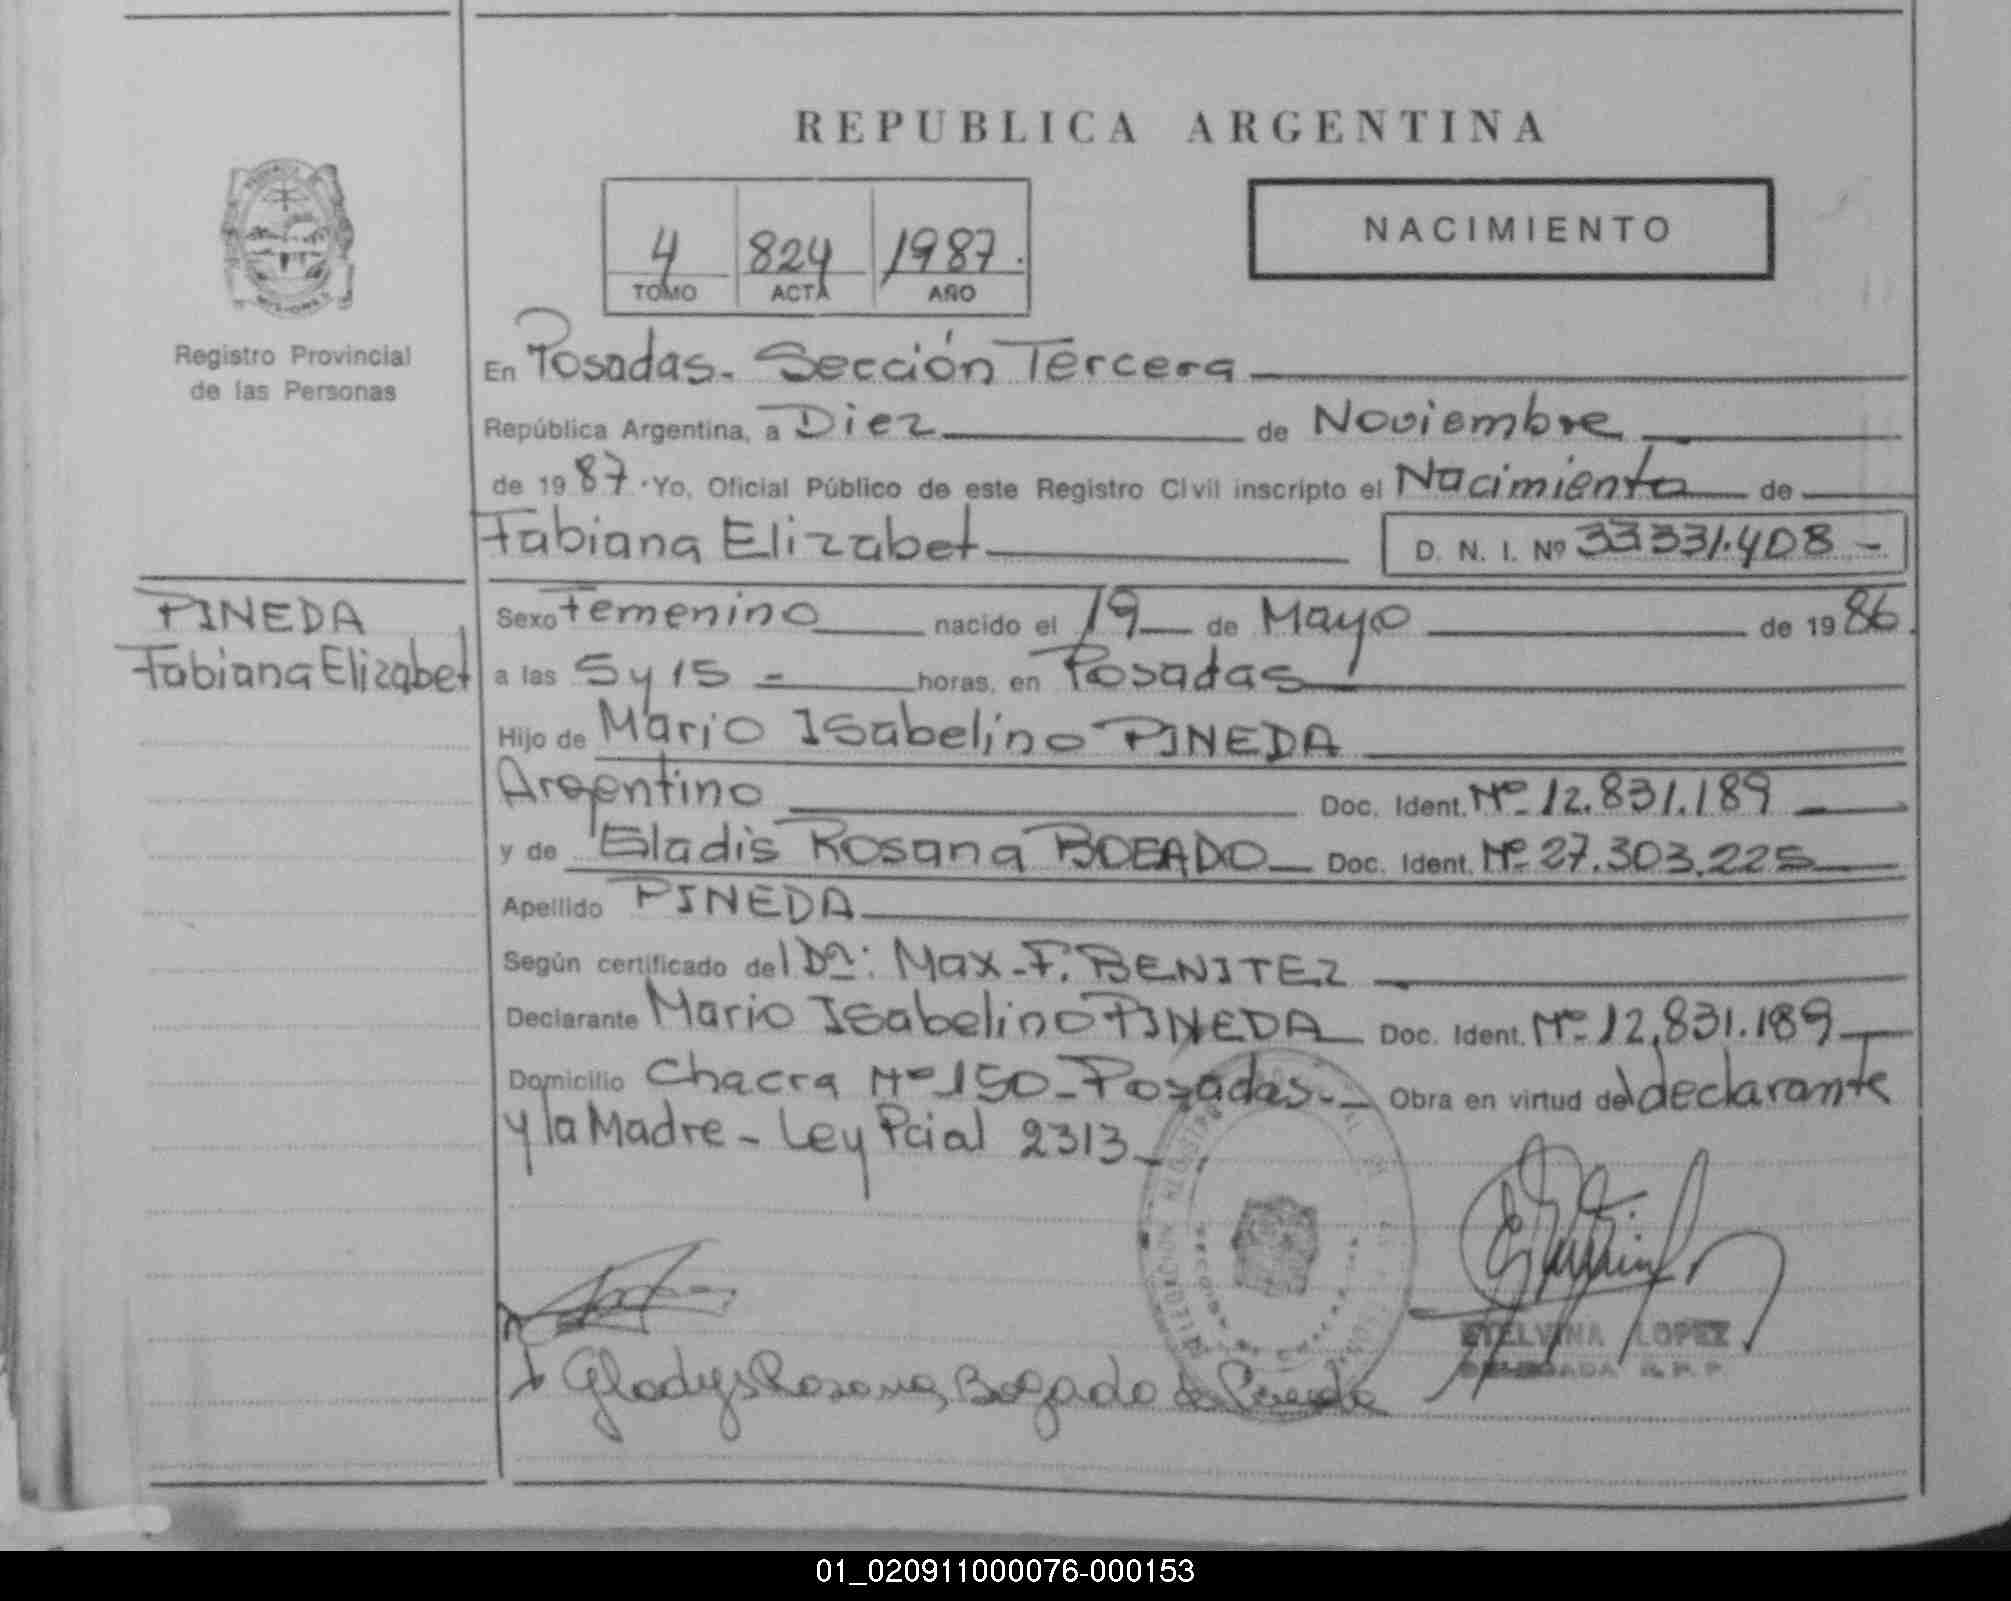 REPUBLICA ARGENTINA
NACIMIENTO
4 824 1987.
TOMO ACTA AÑO
Registro Provincial
de las Personas
En Posadas. Sección Tercera
República Argentina, a Diez de Noviembre
de 1987. Yo, Oficial Público de este Registro Civil inscripto el Nacimiento de
Fabiana Elizabet D. N. I. Nº 33331.408 -
PINEDA
Fabiana Elizabet
Sexo Femenino nacido el 19 de Mayo de 1986.
a las 5 y 15 - horas, en Posadas
Hijo de Mario Isabelino PINEDA
Argentino Doc. Ident. Nº 12.831.189
y de Gladis Rosana BOGADO Doc. Ident. Nº 27.303.225
Apellido PINEDA
Según certificado del Dr: Max. F. BENITEZ
Declarante Mario Isabelino PINEDA Doc. Ident. Nº 12.831.189
Domicilio Chacra Nº 150 - Posadas. - Obra en virtud del declarante
y la Madre - Ley Pcial 2313 -
ETELVINA LOPEZ
DELEGADA R. P. P.
Gladys Rosana Bogado de Pineda
01_020911000076-000153